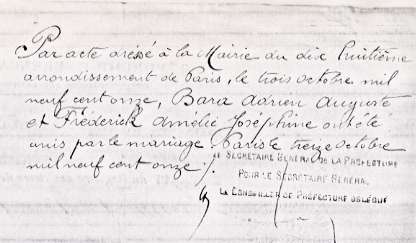 Par acte dressé à la Mairie du dix huitième
arrondissement de Paris, le trois octobre mil
neuf cent onze, Bara Adrien Auguste
et Frédérick Amélie Joséphine ont été
unis par le mariage. Paris le treize octobre
mil neuf cent onze ./.
LE SECRÉTAIRE GÉNÉRAL DE LA PRÉFECTURE
POUR LE SECRÉTAIRE GÉNÉRAL
LE CONSEILLER DE PRÉFECTURE DÉLÉGUÉ